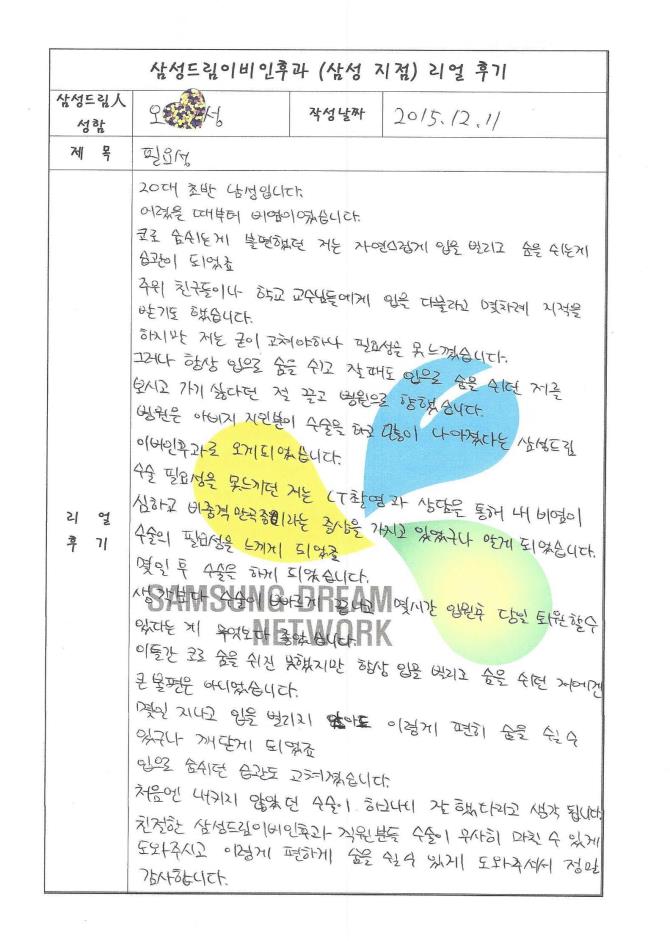 삼성드림이비인후과 (삼성 지점) 리얼 후기
삼성드림人 성함
오 성
작성날짜
2015.12.11
제 목
필요성
리 얼
후 기
20대 초반 남성입니다.
어렸을 때부터 비염이였습니다.
코로 숨쉬는게 불편했던 저는 자연스럽게 입을 벌리고 숨을 쉬는게
습관이 되었죠
주위 친구들이나 학교 교수님들에게 입을 다물라고 몇차례 지적을
받기도 했습니다.
하지만 저는 굳이 고쳐야하나 필요성을 못느꼈습니다.
그러나 항상 입으로 숨을 쉬고 잘때도 입으로 숨을 쉬던 저를
보시고 가기 싫다던 절 끌고 병원으로 향했습니다.
병원은 아버지 지인분이 수술을 하고 많이 나아졌다는 삼성드림
이비인후과로 오게되었습니다.
수술 필요성을 못느끼던 저는 CT촬영과 상담을 통해 내 비염이
심하고 비중격 만곡증이라는 증상을 가지고 있었구나 알게 되었습니다.
수술의 필요성을 느끼게 되었죠
몇일 후 수술을 하게 되었습니다.
생각보다 수술이 빠르게 끝나고 몇시간 입원후 당일 퇴원할수
있다는 게 무엇보다 좋았습니다.
SAMSUNG DREAM
NETWORK
이틀간 코로 숨을 쉬진 못했지만 항상 입을 벌리고 숨을 쉬던 저에겐
큰 불편은 아니었습니다.
몇일 지나고 입을 벌리지 않아도 이렇게 편히 숨을 쉴 수
있구나 깨닫게 되었죠
입으로 숨쉬던 습관도 고쳐졌습니다.
처음엔 내키지 않았던 수술이 하고나니 잘 했다라고 생각 됩니다
친절한 삼성드림이비인후과 직원분들 수술이 무사히 마친 수 있게
도와주시고 이렇게 편하게 숨을 쉴수 있게 도와주셔서 정말
감사합니다.